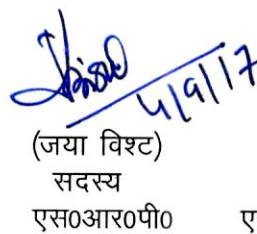 4/9/17
(जया विश्ट)
सदस्य
एस0आर0पी0 ए